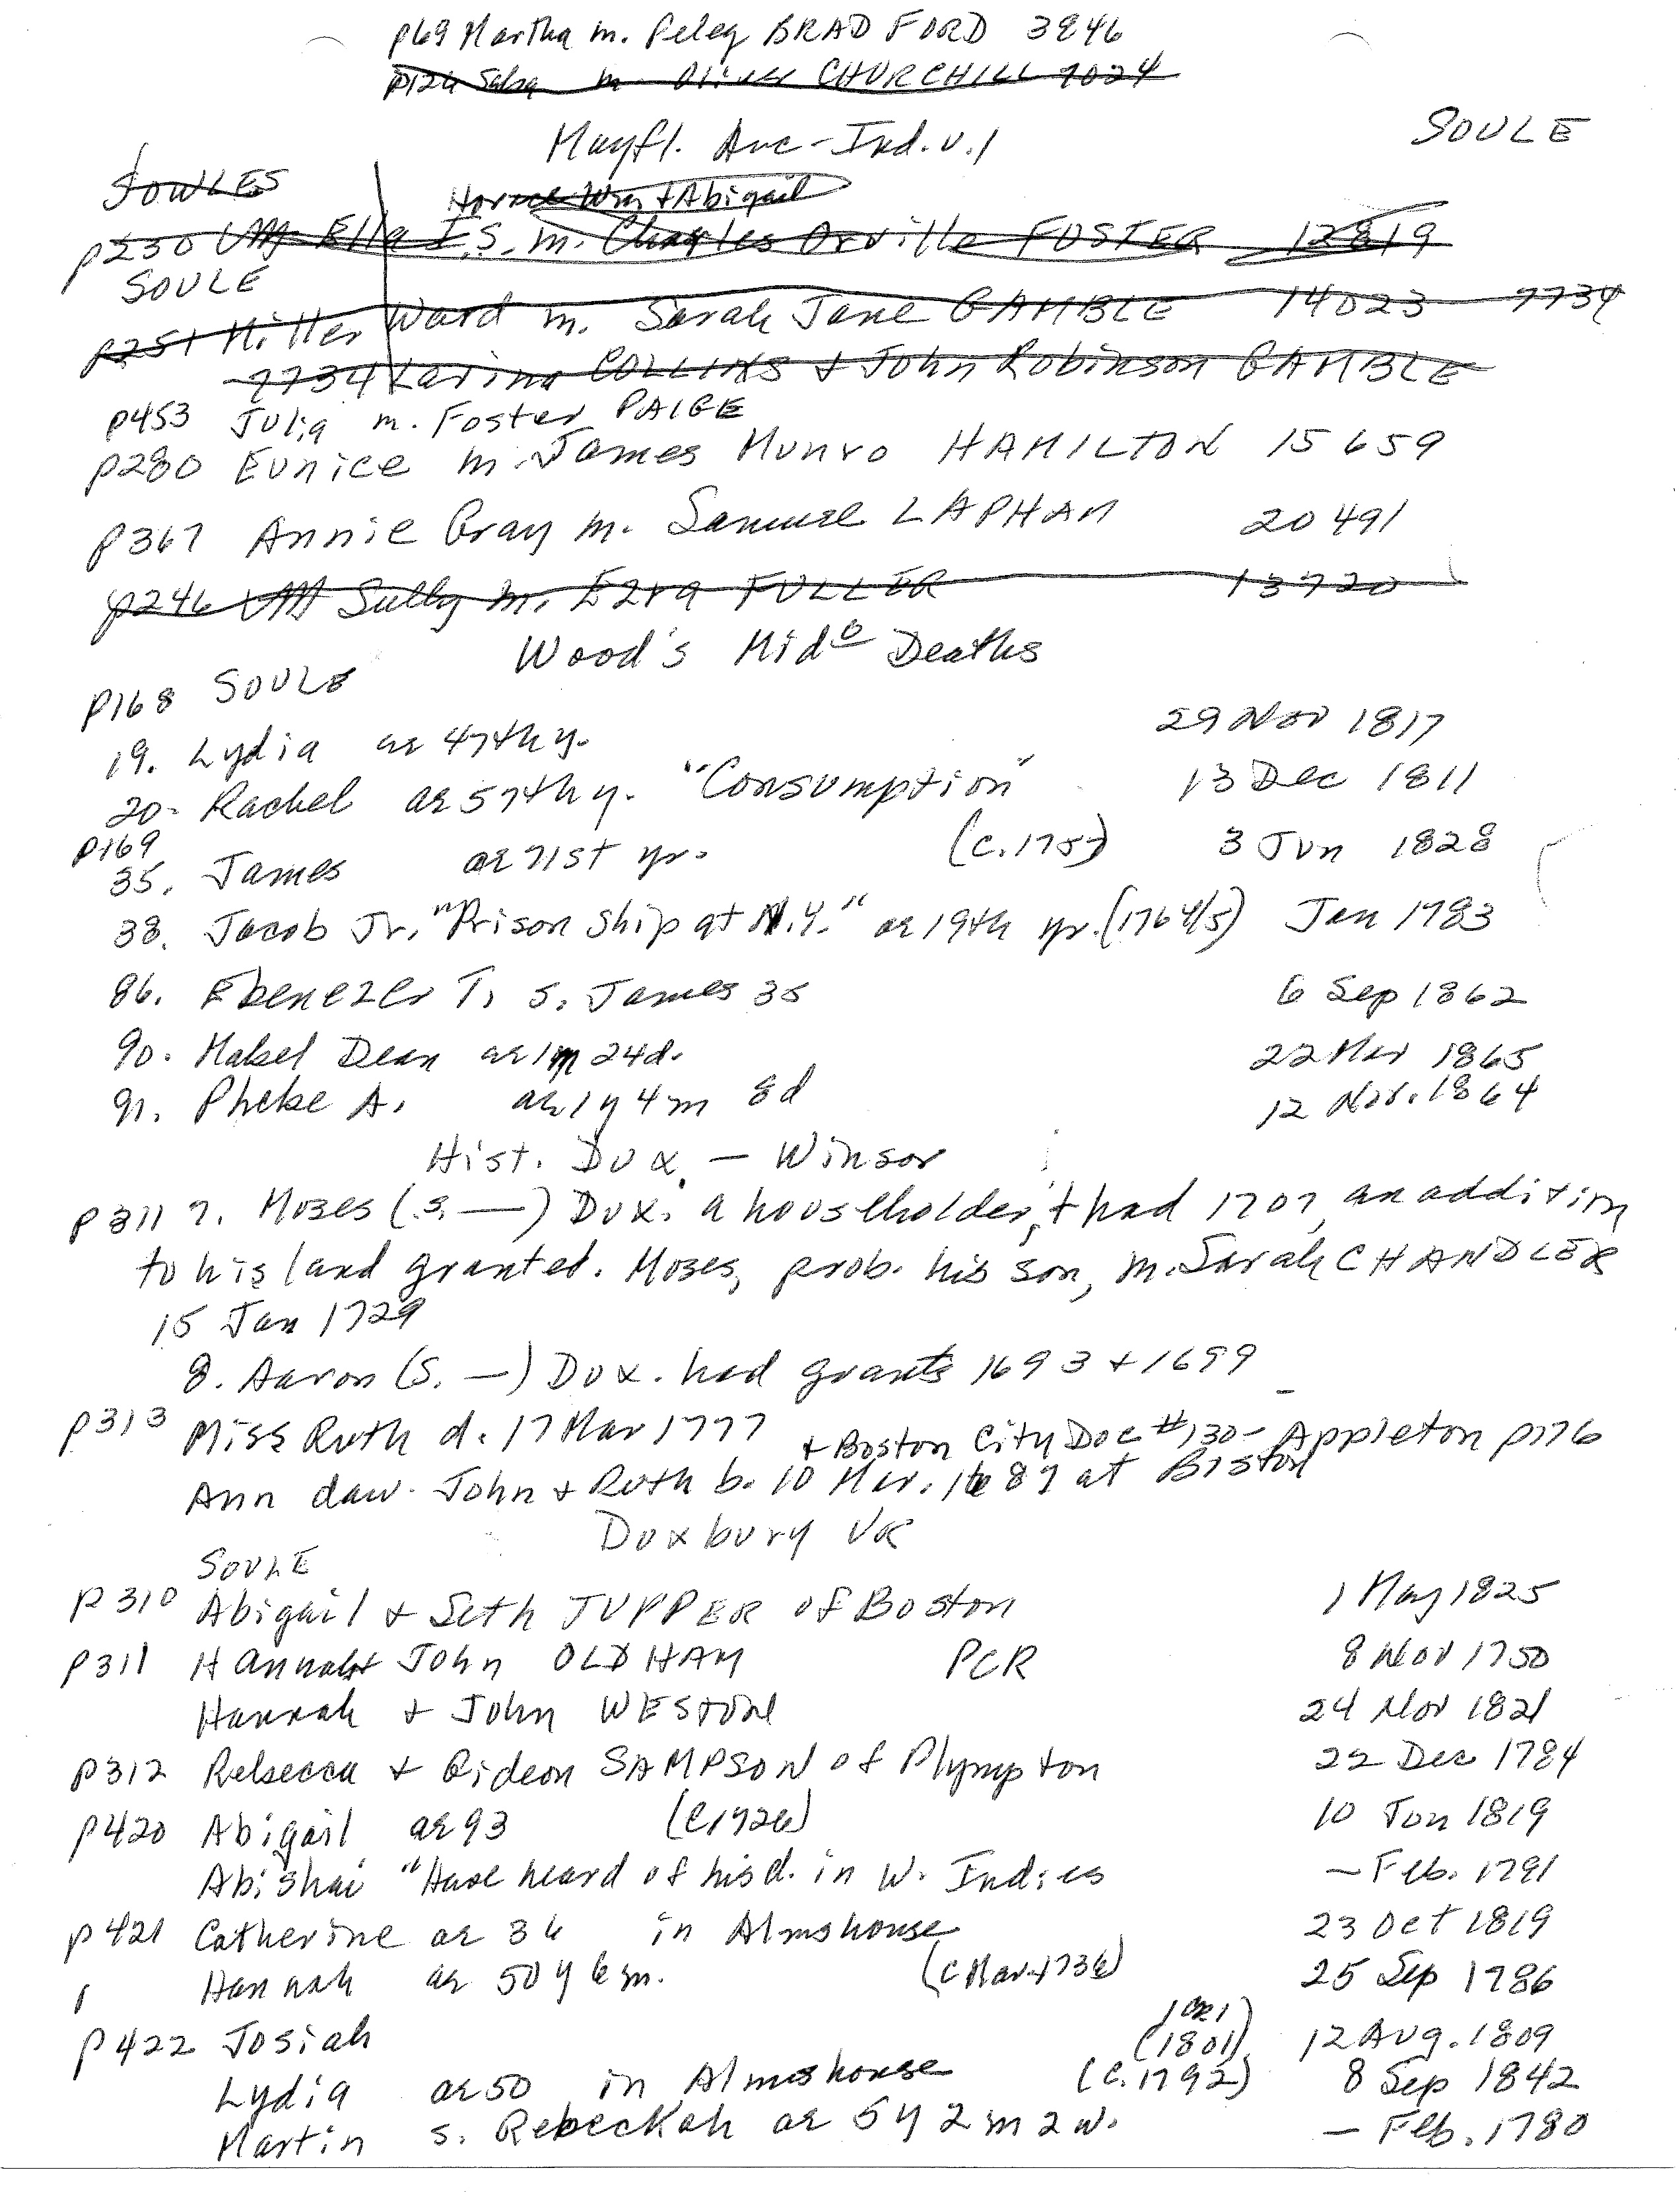 p69 Martha m. Peleg BRADFORD 3846
p126 m Oliver CHURCHILL 7024
SOULE
Mayfl. Arc-Ind. v.1
SOWLES
Horace Wm + Abigail
p230 Ella I.S. m. Charles Orville FOSTER 12819
SOULE
p251 Miller Ward m. Sarah Jane GAMBLE 14023 7734
7734 Larina COLLINS + John Robinson GAMBLE
p453 Julia m. Foster PAIGE
p280 Eunice m. James Munro HAMILTON 15659
p367 Annie Gray m. Samuel LAPHAM 20491
p246 Sally m. Ezra FULLER 13720
Wood's Mido Deaths
p168 SOULE
19. Lydia ae 47th y. 29 Nov 1817
20. Rachel ae 57th y. "Consumption" 13 Dec 1811
p169
35. James ae 71st yr. (c.1757) 3 Jun 1828
38. Jacob Jr. "Prison Ship at N.Y." ae 19th yr. (1764/5) Jan 1783
86. Ebenezer T. s. James 35 6 Sep 1862
90. Mabel Dean ae 1m 24d. 22 Mar 1865
91. Phebe A. ae 1y 4m 8d 12 Nov. 1864
Hist. Dux. - Winsor
p311 7. Moses (s. —) Dux. a householder, + had 1707, an addition
to his land granted. Moses, prob. his son, m. Sarah CHANDLER
15 Jan 1729
8. Aaron (S. —) Dux. had grants 1693 + 1699
p313 Miss Ruth d. 17 Mar 1777
+ Boston City Doc #130 - Appleton p176
Ann daw. John + Ruth b. 10 Mar. 1687 at Boston
Duxbury VR
SOULE
p310 Abigail + Seth TUPPER of Boston 1 May 1825
p311 Hannah + John OLDHAM PCR 8 Nov 1750
Hannah + John WESTON 24 Nov 1821
p312 Rebecca + Gideon SAMPSON of Plympton 22 Dec 1784
p420 Abigail ae 93 (C1726) 10 Jan 1819
Abishai "Have heard of his d. in W. Indies — Feb. 1791
p421 Catherine ae 36 in Almshouse 23 Oct 1819
Hannah ae 50y 6m. (C Mar. 1736) 25 Sep 1786
1CR1
p422 Josiah (1801) 12 Aug. 1809
Lydia ae 50 in Almshouse (C.1792) 8 Sep 1842
Martin s. Rebeckah ae 5y 2m 2w. — Feb. 1780